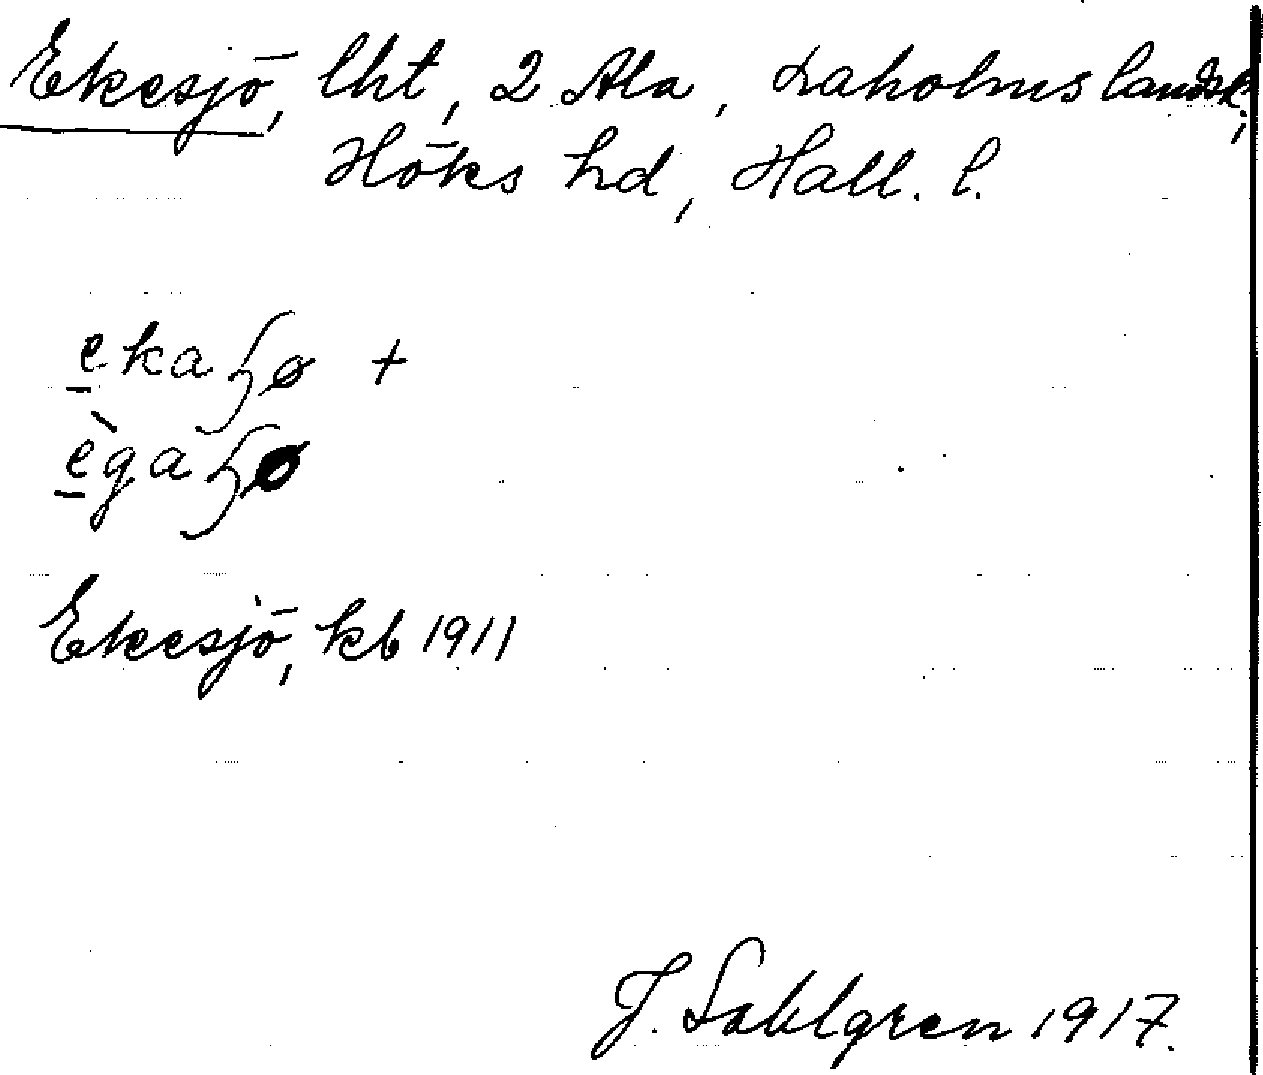 Ekesjö, lht, 2 Ala, Laholms landsk.,
Höks hd, Hall. l.
ekaɧø +
ègaɧø
Ekesjö, kb 1911
J. Sahlgren 1917.